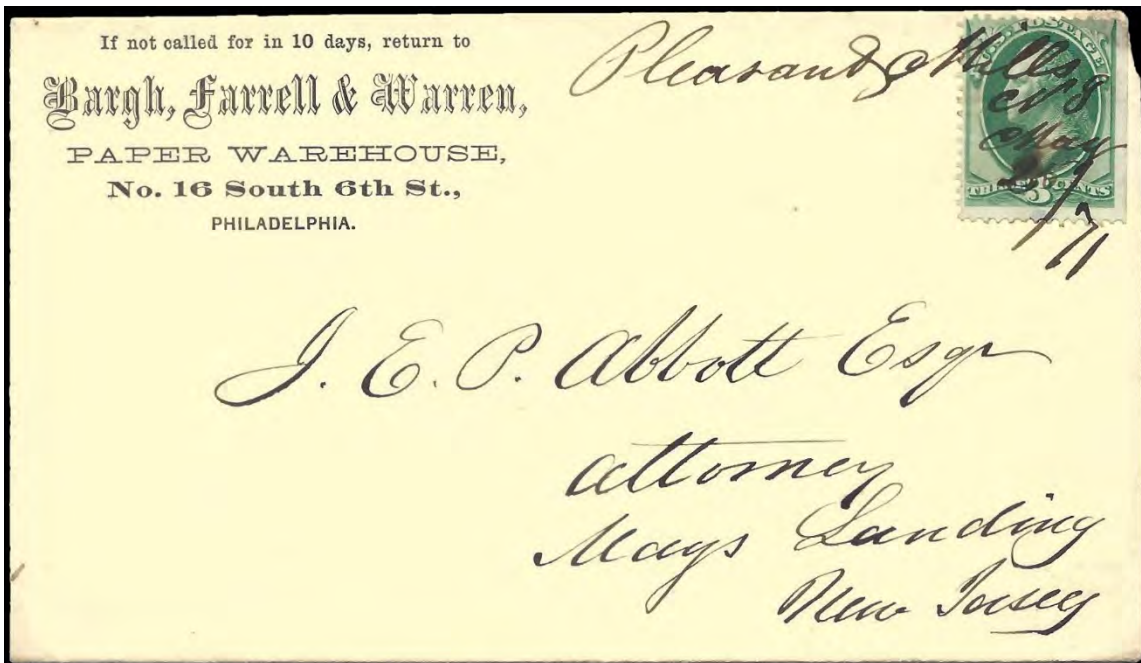 If not called for in 10 days, return to
Bargh, Farrell & Warren,
PAPER WAREHOUSE,
No. 16 South 6th St.,
PHILADELPHIA.
Pleasant Mills
N J
May
71
U.S. POSTAGE
THREE 3 CENTS
J. E. P. Abbott Esqr
Attorney
Mays Landing
New Jersey